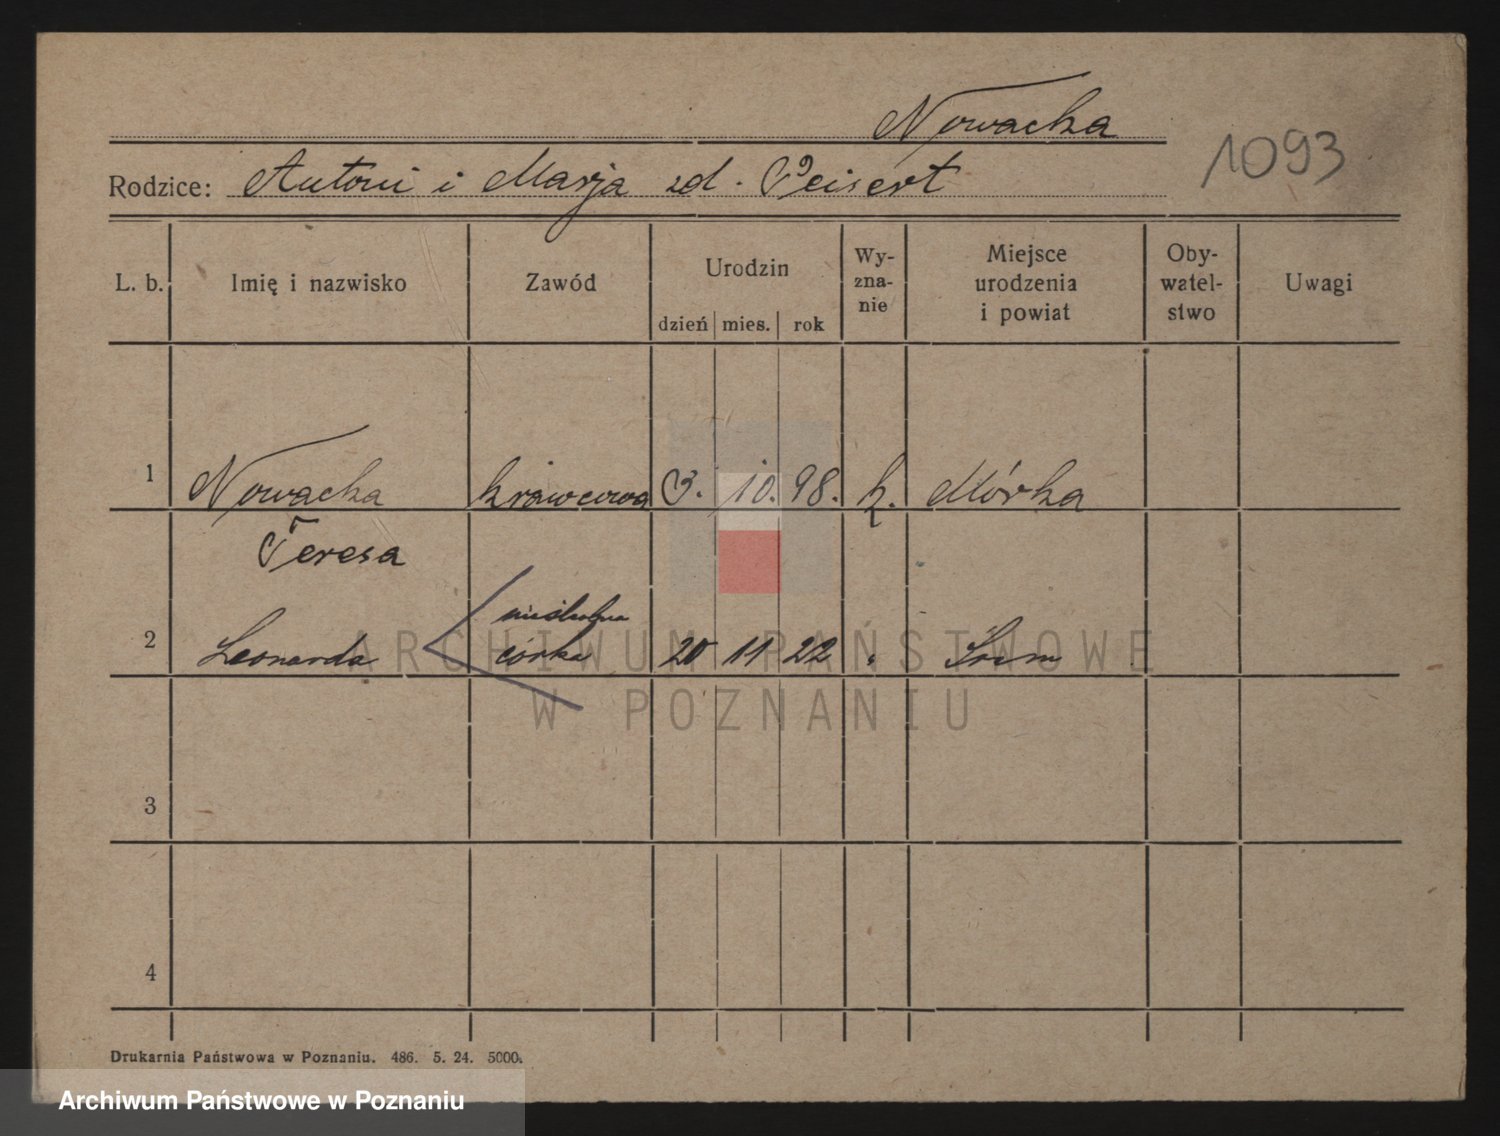 Nowacka
1093
Rodzice: Antoni i Marja zd. Peisert
L. b. Imię i nazwisko Zawód Urodzin dzień mies. rok Wy-zna-nie Miejsce urodzenia i powiat Oby-watel-stwo Uwagi
1 Nowacka krawcowa 3. 10. 98. k. Mórka
Teresa
nieślubna
2 Leonarda córka 20 11 22 " Śrem
ARCHIWUM PAŃSTWOWE
W POZNANIU
3
4
Drukarnia Państwowa w Poznaniu. 486. 5. 24. 5000.
Archiwum Państwowe w Poznaniu